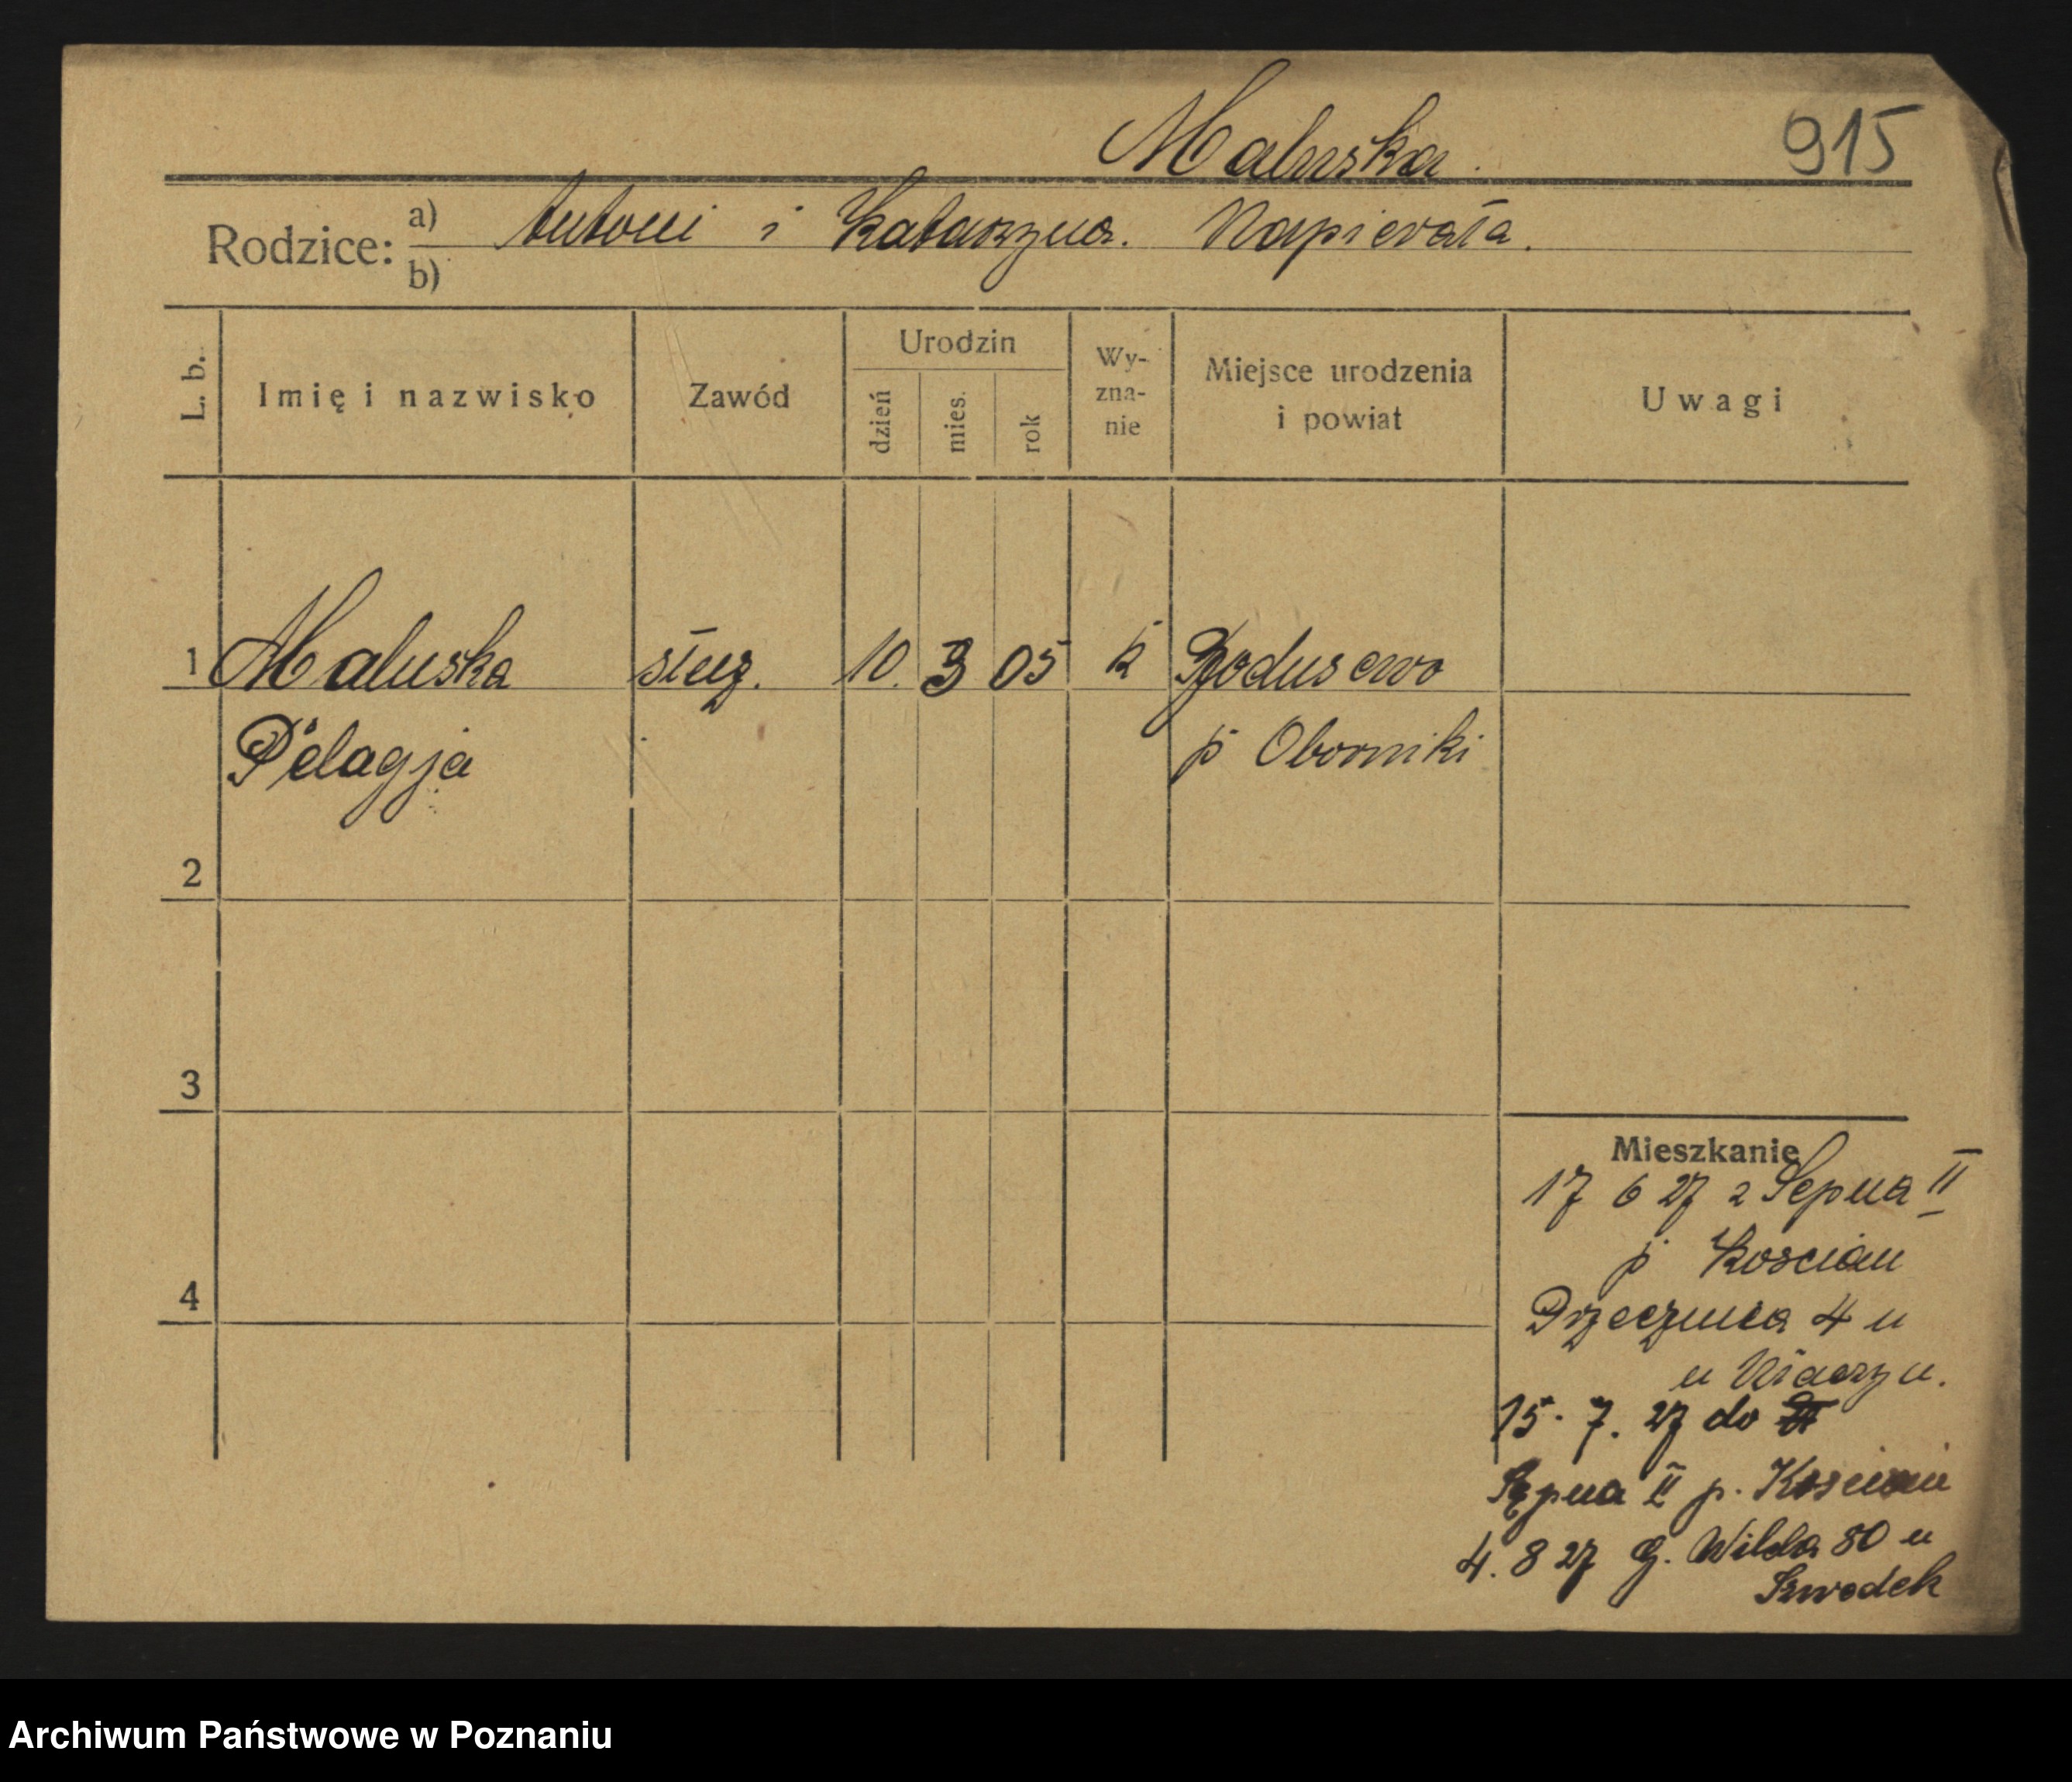 Maluska.
915
Rodzice: a) Antoni i Katarzyna. Napierała.
b)
L. b.
Imię i nazwisko
Zawód
Urodzin
dzień
mies.
rok
Wy-
zna-
nie
Miejsce urodzenia
i powiat
Uwagi
1 Maluska służ. 10. 3 05 k
Pelagja p Oborniki
2
3
4
Mieszkanie
17 6 27 z Sepna II
p Koscian
4 u
u
15. 7. 27 do
Sępna II p. Koscian
4. 8 27 G. Wilda 80 u
Szwedek
Archiwum Państwowe w Poznaniu